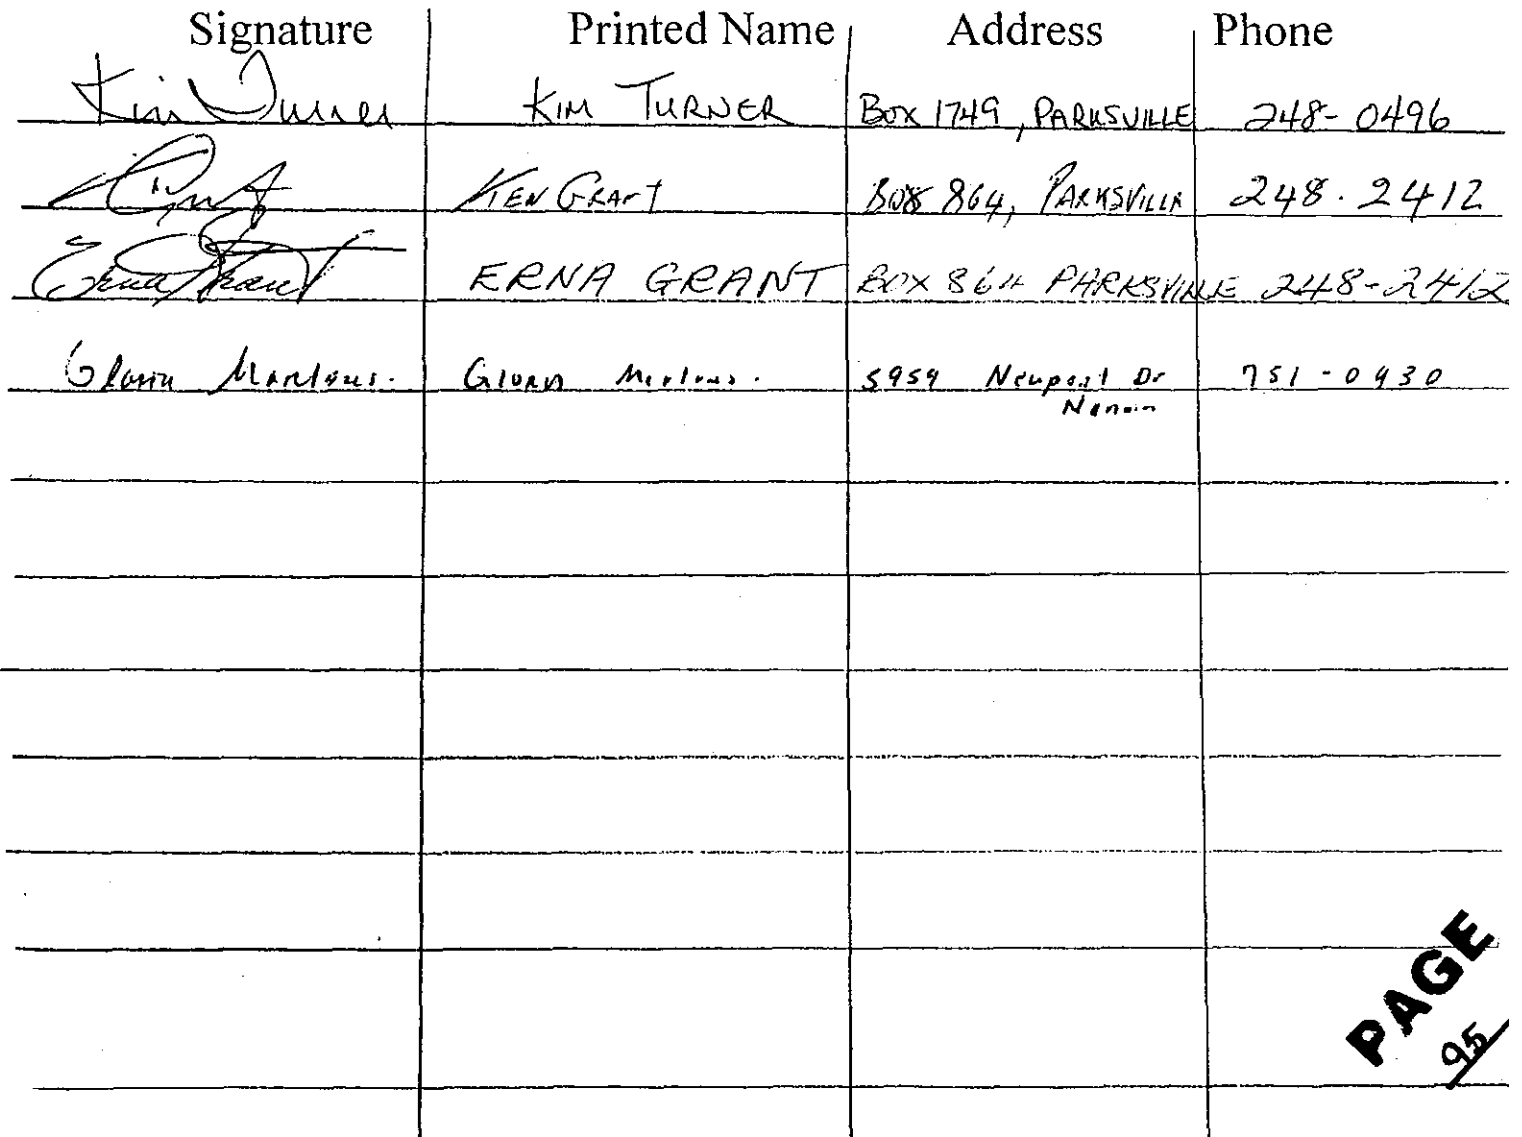 Signature Printed Name Address Phone
Kim Turner KIM TURNER BOX 1749, PARKSVILLE 248-0496
KEN GRANT BOX 864, PARKSVILLE 248.2412
Erna Grant ERNA GRANT BOX 864 PARKSVILLE 248-2412
Gloria Gloria 5959 Newport Dr 751-0430
PAGE
95